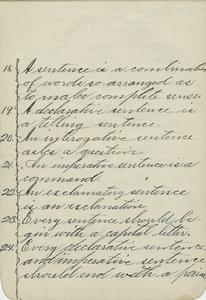 18. A sentence is a combination
of words so arranged as
to make complete sense.
19. A declarative sentence is
a telling sentence.
20. An interogative sentence
asks a question.
21. An imperative sentence is a
command.
22. An exclamatory sentence
is an exclamation.
23. Every sentence should be-
gin with a capital letter.
24. Every declarative sentence
and imperative sentence
should end with a period